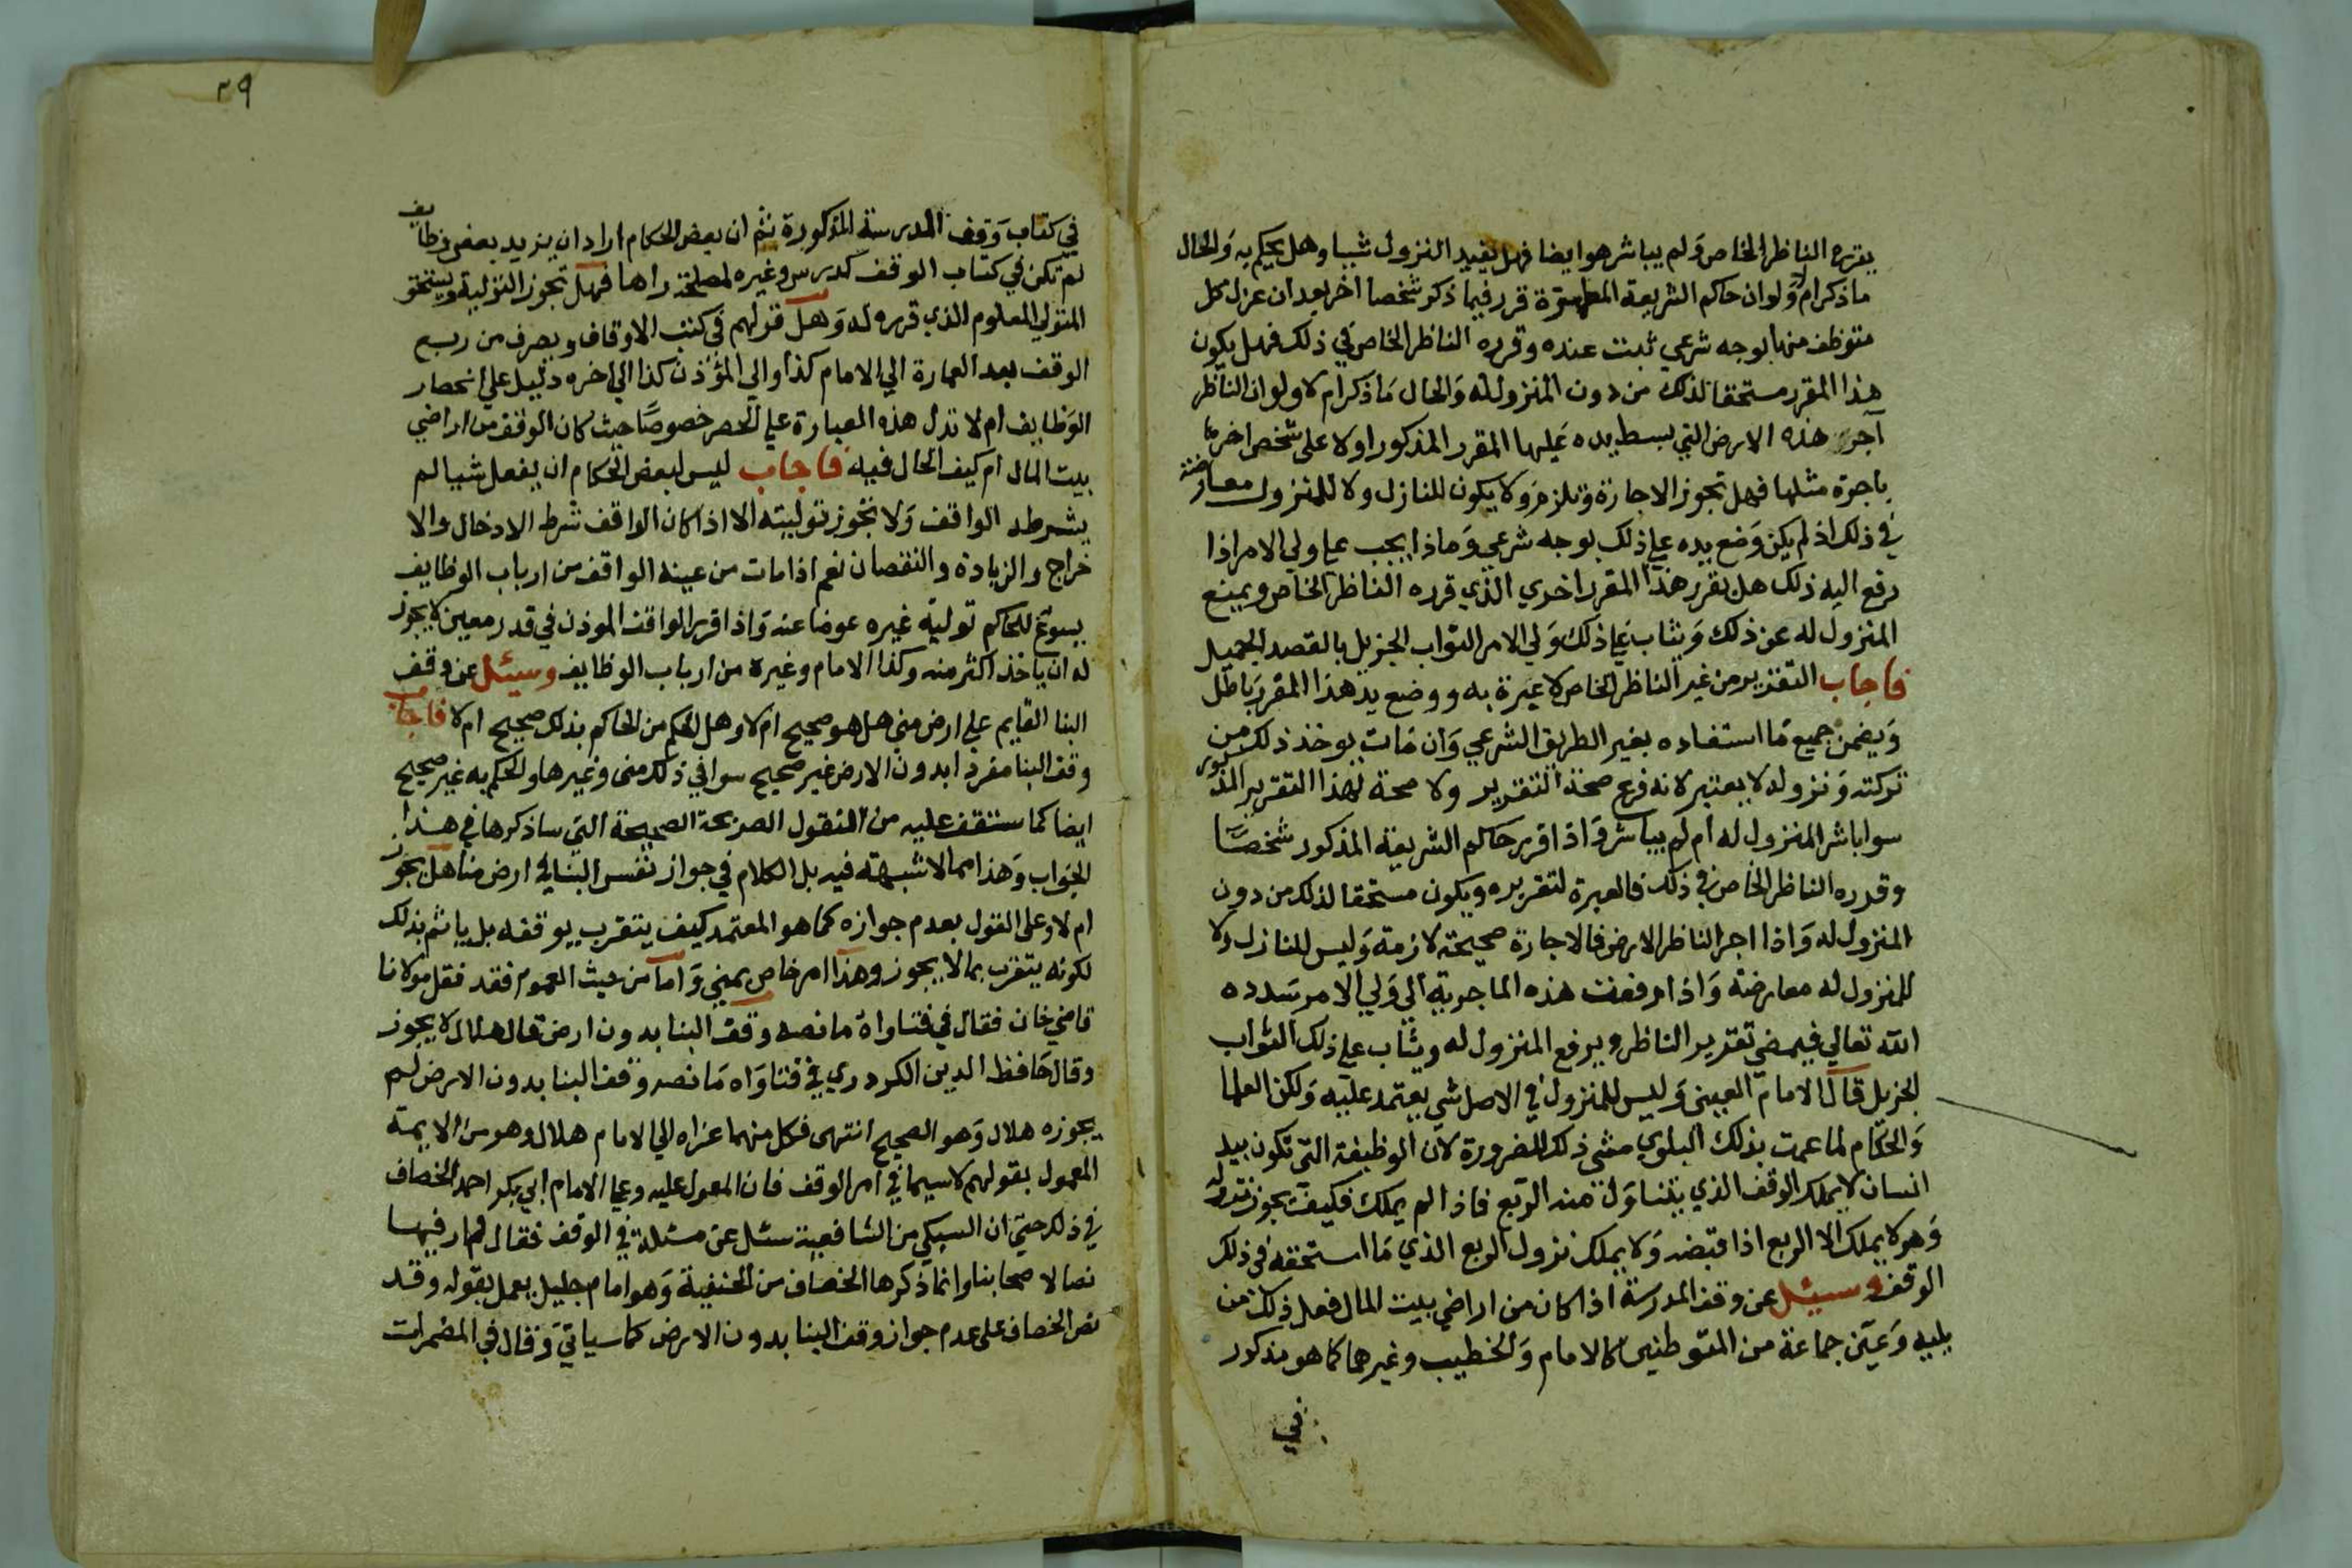 يقرره الناظر الخاص ولم يباشر هو ايضا فهل يفيد النزول شيا وهل يحكم به والحال
ما ذكر ام لا ولو ان حاكم الشريعة المطهرة قرر فيما ذكر شخصا اخر بعد ان عزل كل
متوظف منها بوجه شرعي ثبت عنده وقرره الناظر الخاص في ذلك فهل يكون
هذا المقرر مستحقا لذلك من دون المنزول له والحال ما ذكر ام لا ولو ان الناظر
آجر هذه الارض التي بسط يده عليها المقرر المذكور اولا على شخص اخر
باجرة مثلها فهل تجوز الاجارة وتلزم ولا يكون للنازل ولا للمنزول معارضة
في ذلك اذ لم يكن وضع يده على ذلك بوجه شرعي وماذا يجب على ولي الامر اذا
رفع اليه ذلك هل يقرر هذا المقرر اخري الذي قرره الناظر الخاص ويمنع
المنزول له عن ذلك ويثاب على ذلك ولي الامر الثواب الجزيل بالقصد الجميل
فاجاب التقرير من غير الناظر الخاص لا عبرة به ووضع يد هذا المقرر باطل
ويضمن جميع ما استفاده بغير الطريق الشرعي وان مات يوخذ ذلك من
تركته ونزوله لا يعتبر لانه فرع صحة التقرير ولا صحة لهذا التقرير المذكور
سوا باشر المنزول له ام لم يباشر واذا قرر حاكم الشريعة المذكور شخصا
وقرره الناظر الخاص في ذلك فالعبرة لتقريره ويكون مستحقا لذلك من دون
المنزول له واذا اجر الناظر الارض فالاجارة صحيحة لازمة وليس للنازل ولا
للمنزول له معارضة واذا رفعت هذه الماجرية الي ولي الامر سدده
الله تعالي فيمضي تقرير الناظر ويرفع المنزول له ويثاب على ذلك الثواب
الجزيل قال الامام العيني وليس للمنزول في الاصل شي يعتمد عليه ولكن العلما
والحكام لما عمت بذلك البلوي مشى ذلك للضرورة لان الوظيفة التي تكون بيد
انسان لا يملك الوقف الذي يتناول منه الريع فاذا لم يملك فكيف يجوز نزوله
وهو لا يملك الا الريع اذا قبضه ولا يملك نزول الريع الذي ما استحقه في ذلك
الوقف وسيئل عن وقف المدرسة اذا كان من اراضي بيت المال فعل ذلك من
يليه وعين جماعة من المتوطنين كالامام والخطيب وغيرهما كما هو مذكور
في
٢٩
في كتاب وقف المدرسة المذكورة ثم ان بعض الحكام اراد ان يزيد بعض وظايف
لم تكن في كتاب الوقف كدرس وغيره لمصلحة راها فهل تجوز التولية ويستحق
المتولي المعلوم الذي قرره له وهل قولهم في كتب الاوقاف ويصرف من ريع
الوقف بعد العمارة الي الامام كذا والي المؤذن كذا الي اخره دليل على انحصار
الوظايف ام لا تدل هذه العبارة على الحصر خصوصا حيث كان الوقف من اراضي
بيت المال ام كيف الحال فيه فاجاب ليس لبعض الحكام ان يفعل شيا لم
يشرطه الواقف ولا تجوز توليته الا اذا كان الواقف شرط الادخال والا
خراج والزيادة والنقصان نعم اذا مات من عينه الواقف من ارباب الوظايف
يسوغ للحاكم تولية غيره عوضا عنه واذا قرر الواقف الموذن في قدر معين لا يجوز
له ان ياخذ اكثر منه وكذا الامام وغيره من ارباب الوظايف وسيئل عن وقف
البنا القايم على ارض منى هل هو صحيح ام لا وهل الحكم من الحاكم بذلك صحيح ام لا فاجاب
وقف البنا مفردا بدون الارض غير صحيح سوا في ذلك منى وغيرها والحكم به غير صحيح
ايضا كما ستقف عليه من النقول الصريحة الصحيحة التي ساذكرها في هذا
الجواب وهذا مما لا شبهة فيه بل الكلام في جواز نفس البنا في ارض منا هل يجوز
ام لا وعلى القول بعدم جوازه كما هو المعتمد كيف يتقرب بوقفه بل ياثم بذلك
لكونه يتقرب بما لا يجوز وهذا امر خاص بمني واما من حيث العموم فقد نقل مولانا
قاضي خان فقال في فتاواه ما نصه وقف البنا بدون ارض قال هلال لا يجوز
وقال حافظ الدين الكردري في فتاواه ما نصه وقف البنا بدون الارض لم
يجوزه هلال وهو الصحيح انتهى فكل منهما عزاه الي الامام هلال وهو من الايمة
المعمول بقولهم لاسيما في امر الوقف فان المعول عليه وعلى الامام ابي بكر احمد الخصاف
في ذلك حتي ان السبكي من الشافعية سئل عن مسئلة في الوقف فقال لم ار فيها
نصا لاصحابنا وانما ذكرها الخصاف من الحنفية وهو امام جليل يعمل بقوله وقد
نص الخصاف على عدم جواز وقف البنا بدون الارض كما سياتي وقال في المضمرات